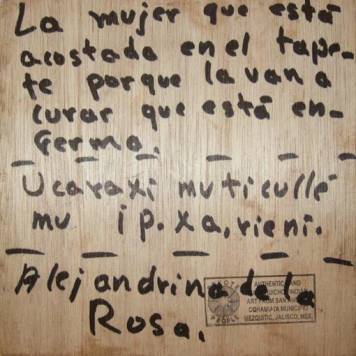 La mujer que está
acostada en el tape-
te porque la van a
curar que está en-
ferma.
Ucaraxi muticullé
mu ip.xa,rieni.
Alejandrina de la
Rosa.
AUTHENTIC AND
ART FROM SAN
COHAMIATA MUNICIPIO
MEZQUITIC, JALISCO, MEX.